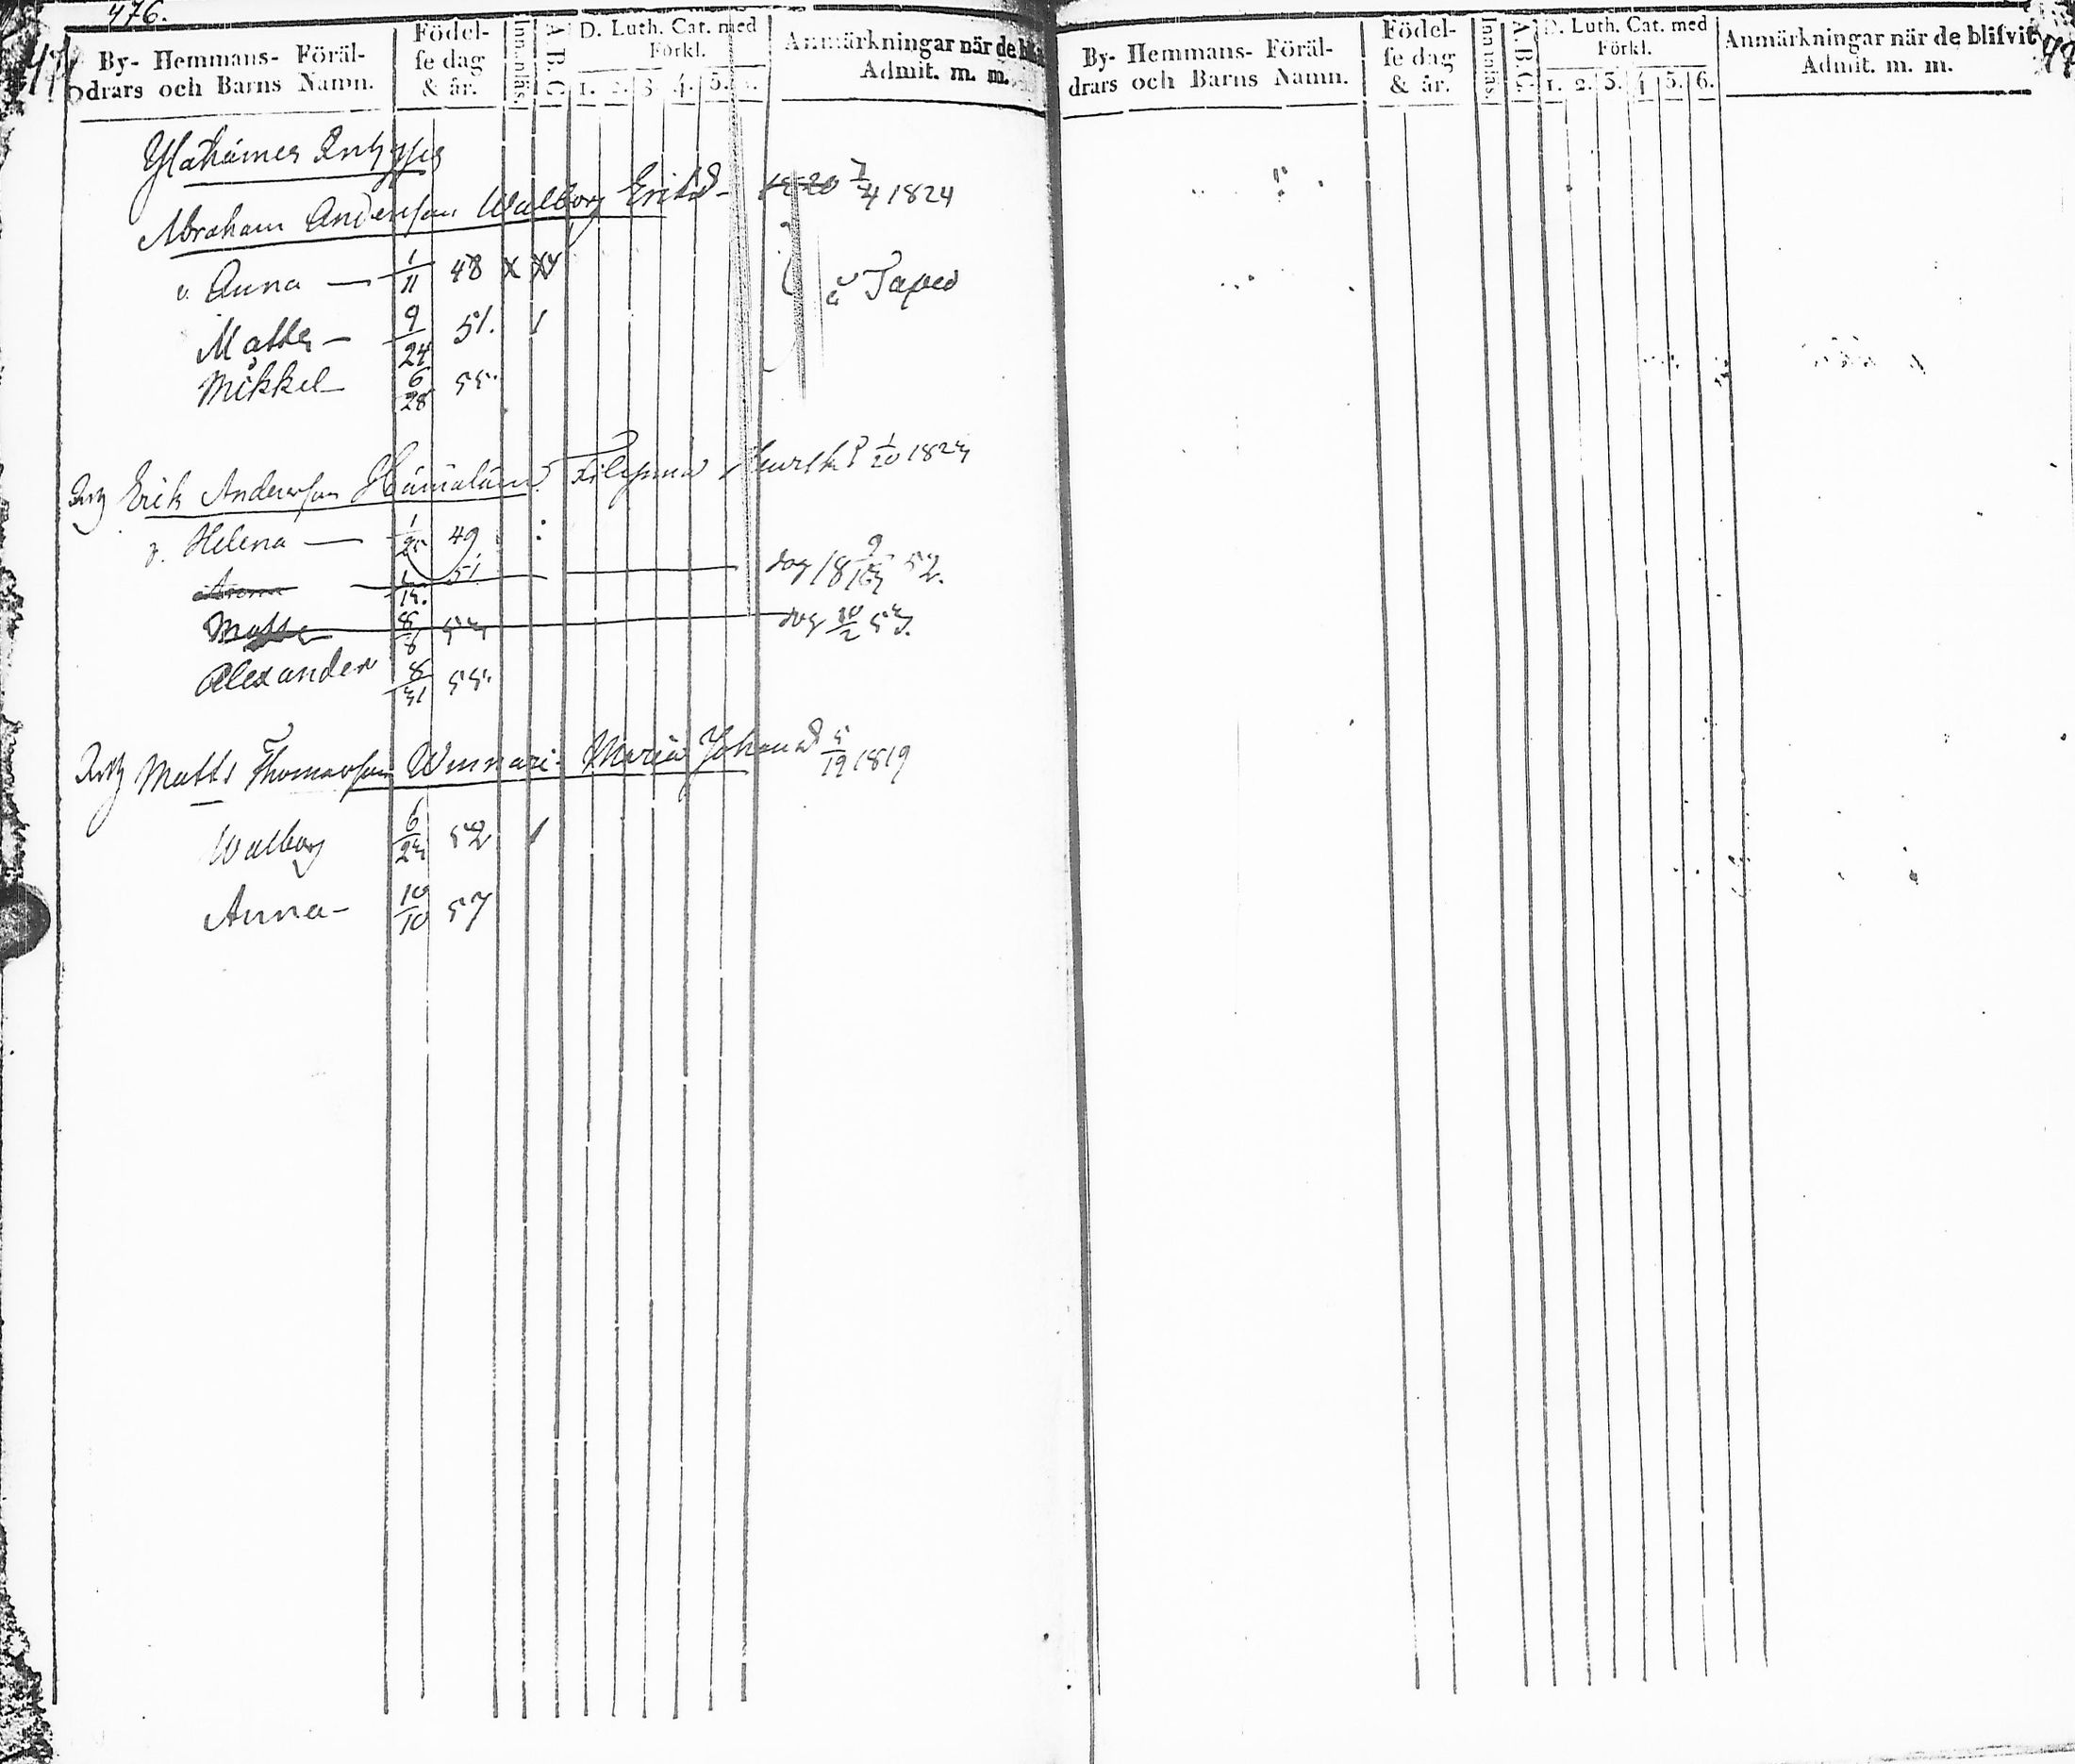 476.
By- Hemmans- Föräl-
drars och Barns Namn.
Födel-
se dag
& år.
Innanläs.
A.B.C.
D. Luth. Cat. med
Förkl.
1. 2. 3. 4. 5. 6.
Anmärkningar när de
Admit. m. m.
Abraham Andersson Walborg Eriksd 7/4 1824
Anna — 1/11 48 x
å Taped
Matts — 9/24 51.
Mikkel 6/28 55.
Erik Andersson Hämäläin 1/20 1823
Helena — 1/25 49
Anna 1/15. 51 dog 52.
Matts 8/8 53 dog 10/2 53.
Alexander 8/31 55.
Matts Thomasson Maria Johansd 5/19 1819
Walborg 6/23 52
Anna - 10/10 57
By- Hemmans- Föräl-
drars och Barns Namn.
Födel-
se dag
& år.
Innanläs.
A.B.C.
D. Luth. Cat. med
Förkl.
1. 2. 3. 4. 5. 6.
Anmärkningar när de blifvit
Admit. m. m.